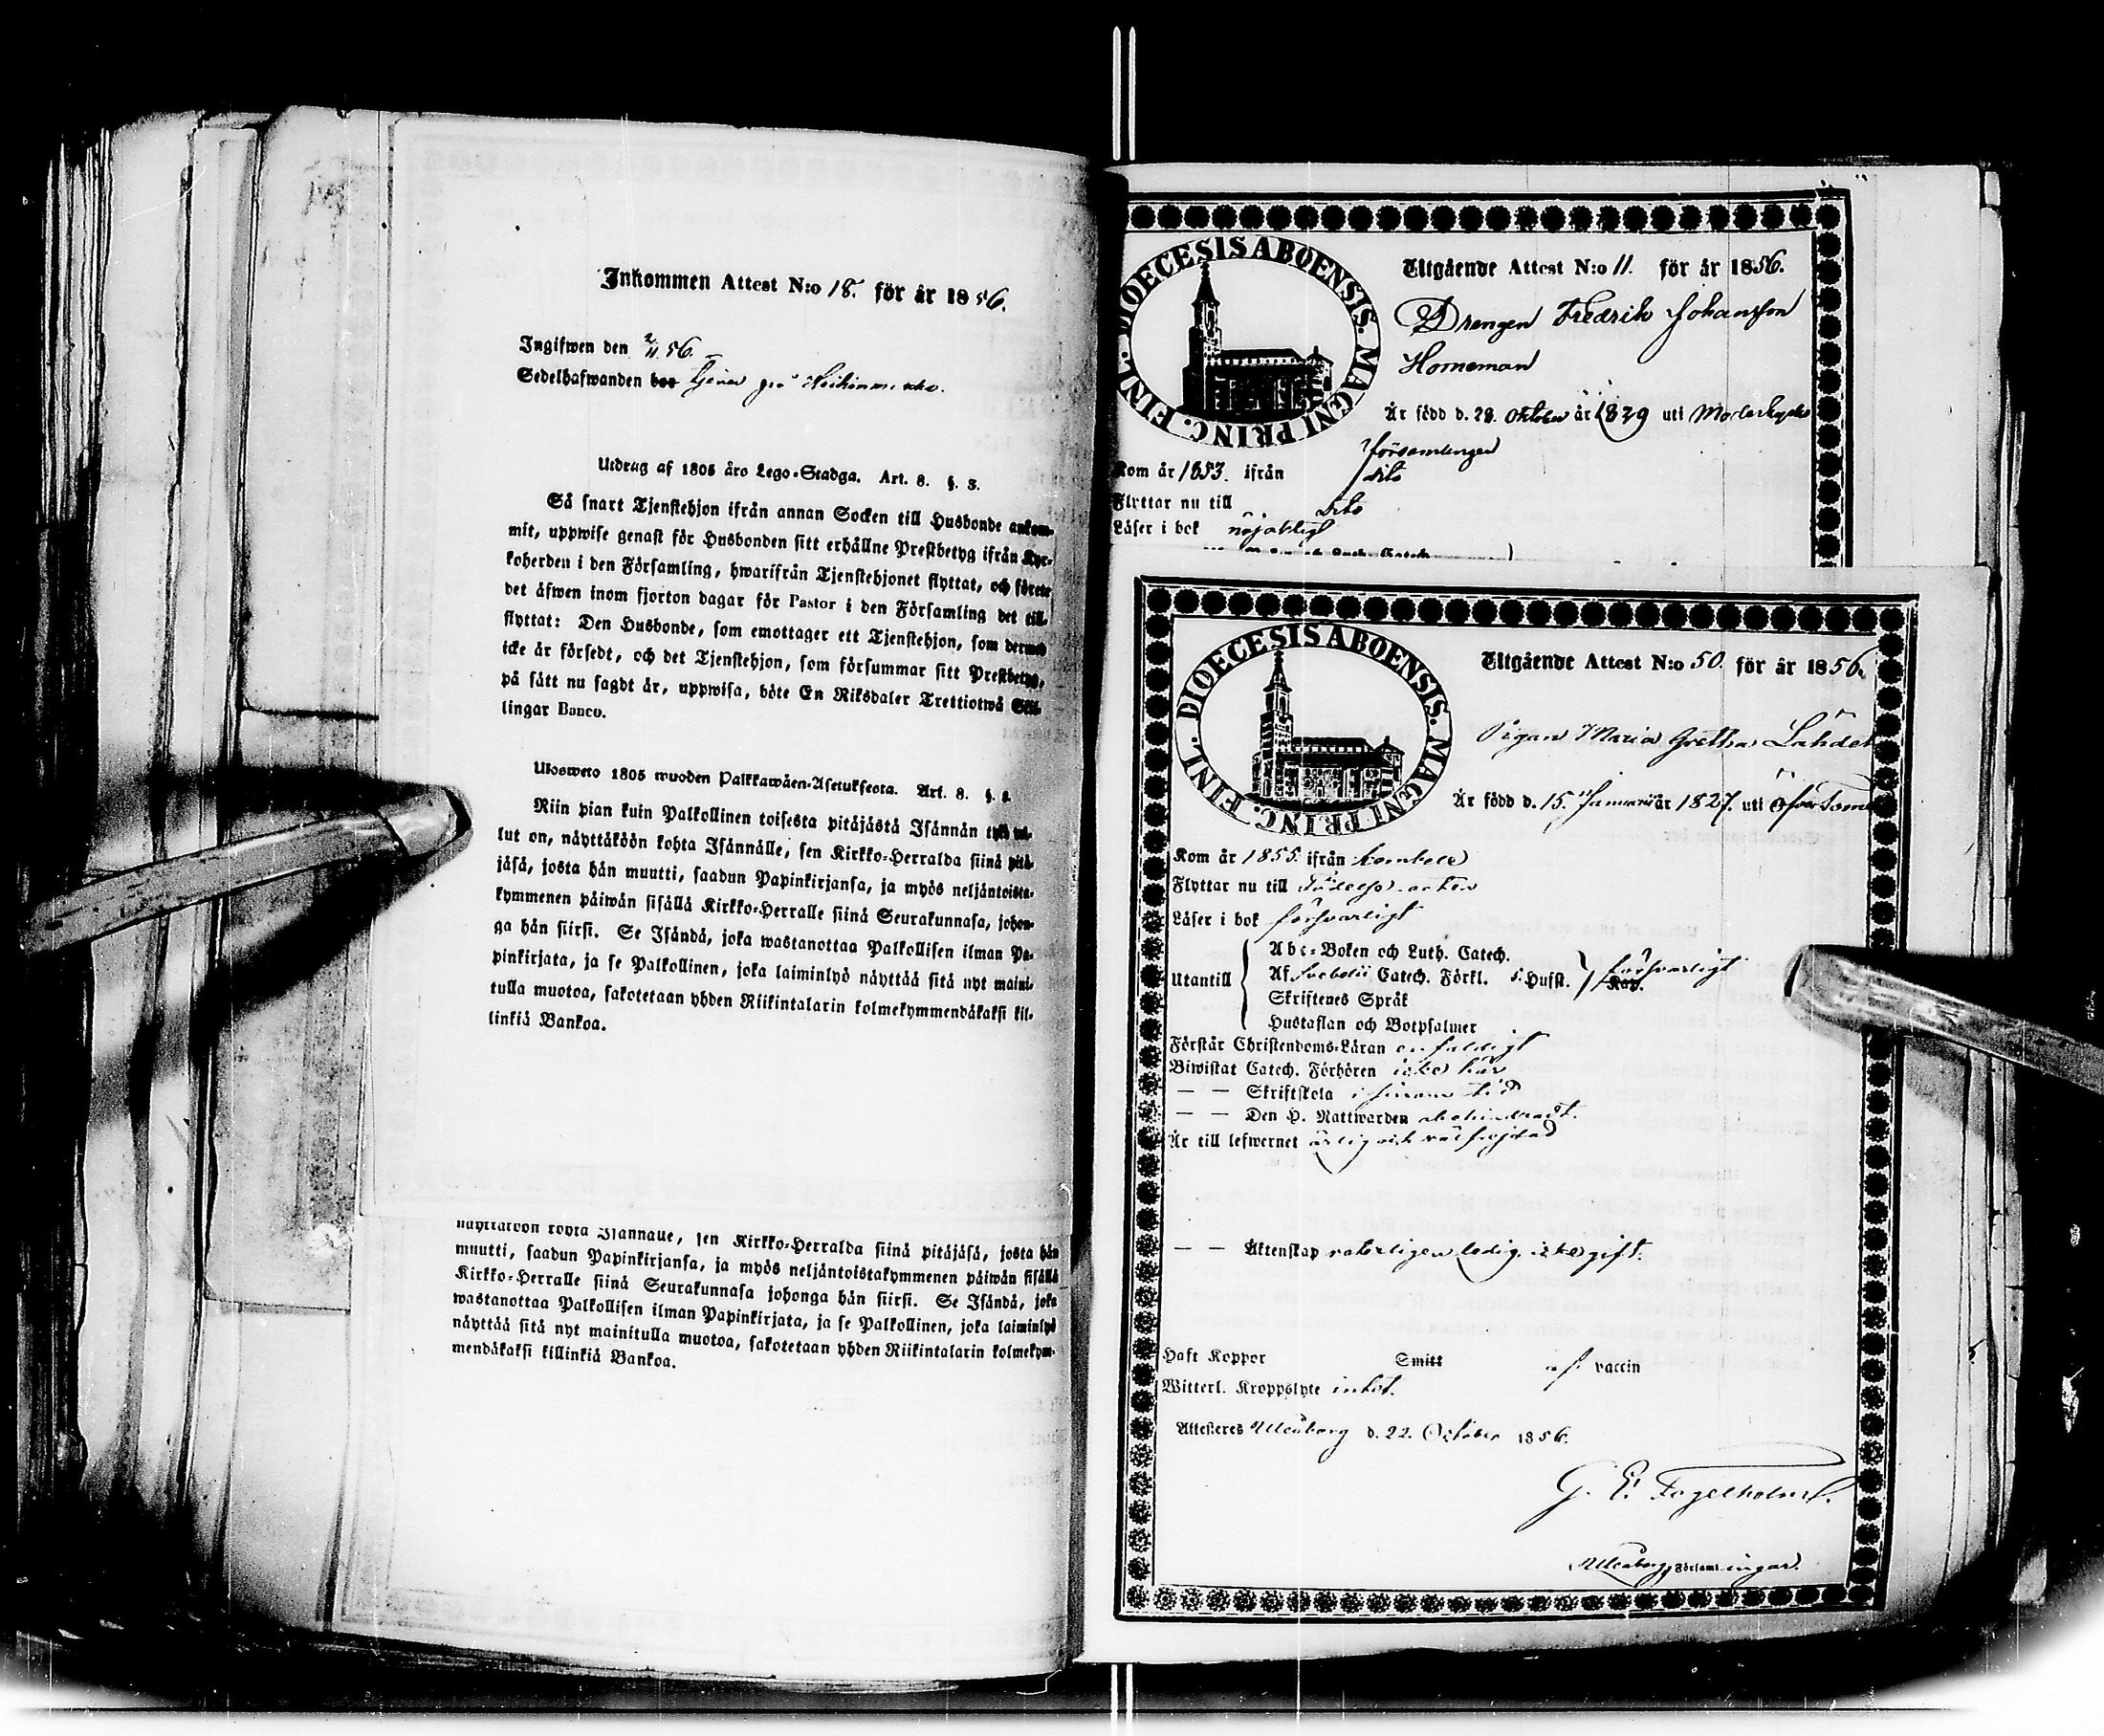 Inkommen Attest N:o 18. för år 1856.
Ingifwen den 2/11 56.
Sedelhafwanden bor tjenar på
Utdrag af 1805 års Lego-Stadga. Art. 8. §. 3.
Så snart Tjenstehjon ifrån annan Socken till Husbonde ankom-
mit, uppwise genast för Husbonden sitt erhållne Prestbetyg ifrån Kyr-
koherden i den Församling, hwarifrån Tjenstehjonet flyttat, och förete
det äfwen inom fjorton dagar för Pastor i den Församling det till-
flyttat: Den Husbonde, som emottager ett Tjenstehjon, som dermed
icke är försedt, och det Tjenstehjon, som försummar sitt Prestbetyg,
på sätt nu sagdt är, uppwisa, böte En Riksdaler Trettiotwå Skil-
lingar Banco.
Ulosweto 1805 wuoden Palkkawäen-Asetuksesta. Art. 8. §. 3.
Niin pian kuin Palkollinen toisesta pitäjästä Isännän tykö tul-
lut on, näyttäköön kohta Isännälle, sen Kirkko-Herralda siinä pitä-
jäsä, josta hän muutti, saadun Papinkirjansa, ja myös neljäntoista-
kymmenen päiwän sisällä Kirkko-Herralle siinä Seurakunnasa, johon-
ga hän siirsi. Se Isändä, joka wastanottaa Palkollisen ilman Pa-
pinkirjata, ja se Palkollinen, joka laiminlyö näyttää sitä nyt maini-
tulla muotoa, sakotetaan yhden Riikintalarin kolmekymmendäkaksi kil-
linkiä Bankoa.
näyttäköön kohta Isännälle, sen Kirkko-Herralda siinä pitäjäsä, josta hän
muutti, saadun Papinkirjansa, ja myös neljäntoistakymmenen päiwän sisällä
Kirkko-Herralle siinä Seurakunnasa johonga hän siirsi. Se Isändä, joka
wastanottaa Palkollisen ilman Papinkirjata, ja se Palkollinen, joka laiminlyö
näyttää sitä nyt mainitulla muotoa, sakotetaan yhden Riikintalarin kolmekym-
mendäkaksi killinkiä Bankoa.
DIOECESIS ABOENSIS. MAGNI PRINC. FINL.
Utgående Attest N:o 11. för år 1856.
Drengen Fredrik Johansson
Horneman
Är född d. 28. Oktober år 1839 uti
församlingen
Kom år 1853. ifrån dito
Flyttar nu till dito
Läser i bok nöjaktigt
DIOECESIS ABOENSIS. MAGNI PRINC. FINL.
Utgående Attest N:o 50. för år 1856.
Pigan Maria Gretha
Är född d. 15. Januari år 1827. uti
Kom år 1855. ifrån Kembele
Flyttar nu till
Läser i bok försvarligt
Utantill
Abc-Boken och Luth. Catech.
Af Svebelii Catech. Förkl. Husst. Kap. försvarligt
Skriftenes Språk
Hustaflan och Botpsalmer
Förstår Christendoms-Läran enfaldigt
Biwistat Catech. Förhören icke här
— — Skriftskola i sinom tid
— — Den H. Nattwarden obehindradt.
Är till lefwernet ärlig och väl frejdad
— — Äktenskap veterligen ledig, icke gift.
Haft Koppor Smitt af vaccin
Witterl. Kroppslyte intet.
Attesteras Uleåborg d. 22. October 1856.
G. E. Fogelholm.
Uleåborgs Församlingar.